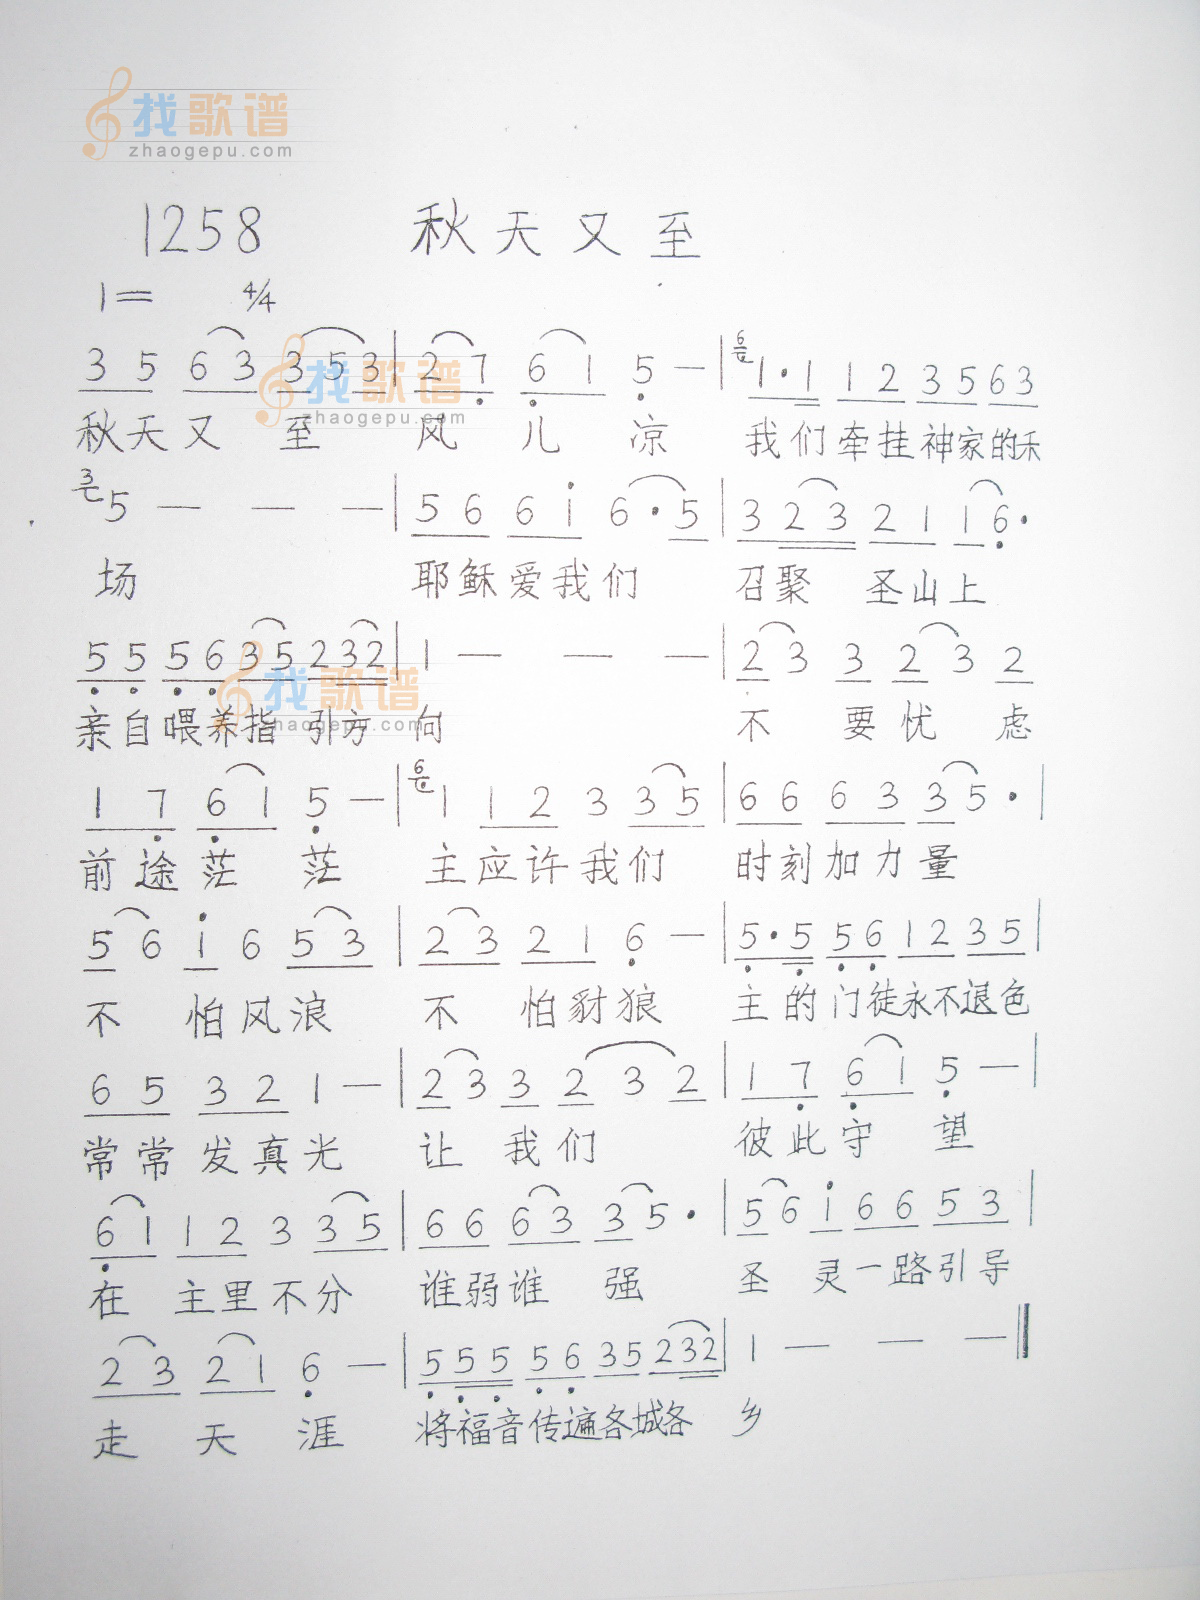 找歌谱
zhaogepu.com
1258 秋天又至
1= 4/4
3 5 6 3 3 5 3 | 2 7 6 1 5 — | 6 1·1 1 2 3 5 6 3
找歌谱
zhaogepu.com
秋天又至 风儿凉 我们牵挂神家的禾
3 5 — — — | 5 6 6 1 6·5 | 3 2 3 2 1 1 6·
场 耶稣爱我们 召聚圣山上
5 5 5 6 3 5 2 3 2 | 1 — — — | 2 3 3 2 3 2
找歌谱
zhaogepu.com
亲自喂养指引方向 不要忧虑
1 7 6 1 5 — | 6 1 1 2 3 3 5 | 6 6 6 3 3 5· |
前途茫茫 主应许我们 时刻加力量
5 6 1 6 5 3 | 2 3 2 1 6 — | 5·5 5 6 1 2 3 5 |
不怕风浪 不怕豺狼 主的门徒永不退色
6 5 3 2 1 — | 2 3 3 2 3 2 | 1 7 6 1 5 — |
常常发真光 让我们 彼此守望
6 1 1 2 3 3 5 | 6 6 6 3 3 5· | 5 6 1 6 6 5 3 |
在主里不分 谁弱谁强 圣灵一路引导
2 3 2 1 6 — | 5 5 5 5 6 3 5 2 3 2 | 1 — — — ‖
走天涯 将福音传遍各城各乡